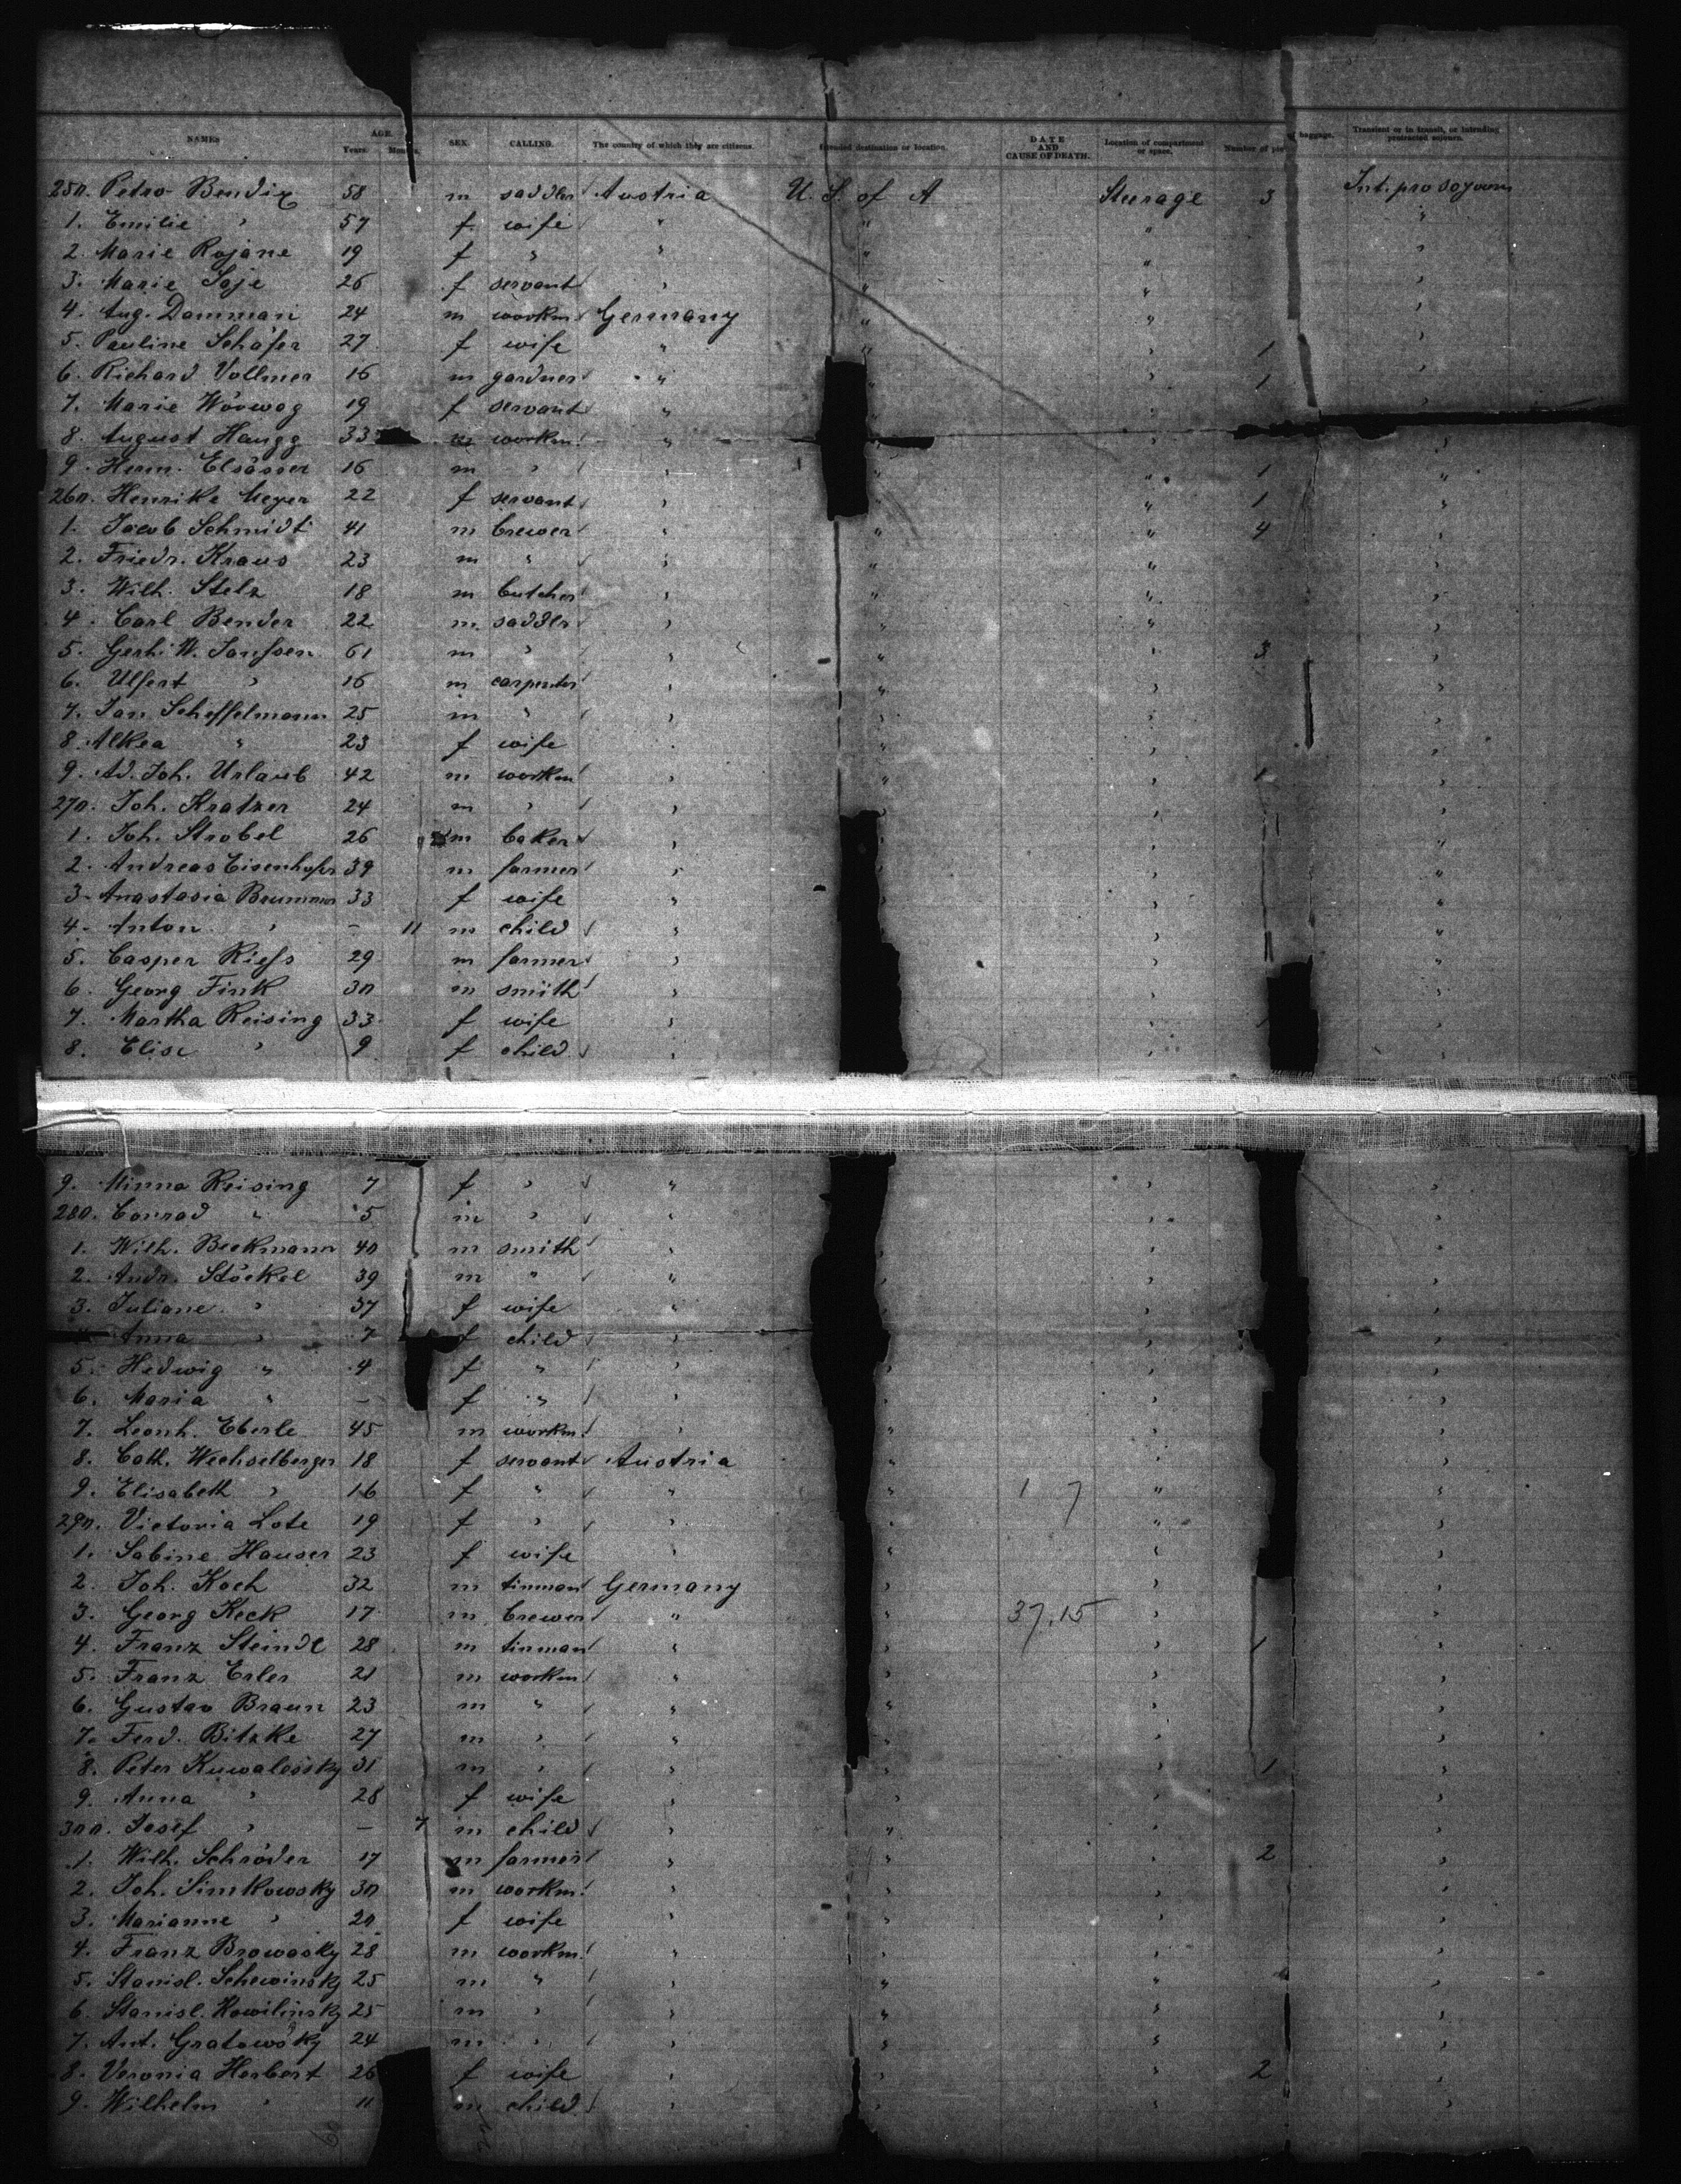 NAMES AGE. Years. SEX. CALLING. The country of which they are citizens. Intended destination or location. DATE AND CAUSE OF DEATH. Location of compartment or space. Number of pie of baggage. Transient or in transit, or intending protracted sojourn.
250. Petro Bendix 58 m saddler Austria U. S. of A Steerage 3 Int. pro sojourn
1. Emilie " 57 f. wife " " " "
2. Marie Rojane 19 f " " " " "
3. Marie Soje 26 f servant " " " "
4. Aug. Damman 24 m workm. Germany " " "
5. Pauline Schäfer 27 f wife " " " 1 "
6. Richard Vollmer 16 m gardner " " " 1 "
7. Marie Wörwag 19 f servant " " "
8. August Haugg 33 m workm. " " "
9. Herm. Elsässer 16 m " " " " 1 "
260. Henrike Meyer 22 f servant " " " 1 "
1. Jacob Schmidt 41 m brewer " " " 4 "
2. Friedr. Kraus 23 m " " " " "
3. Wilh. Stelz 18 m butcher " " " "
4. Carl Bender 22 m. saddler " " " "
5. Gerh. W. Janssen 61 m " " " " 3 "
6. Ulfert " 16 m carpenter " " " "
7. Jan Scheffelmann 25 m " " " " "
8. Alkea " 23 f wife " " " "
9. Ad. Joh. Urlaub 42 m workm " " " 1 "
270. Joh. Kratzer 24 m " " " " "
1. Joh. Strobel 26 m baker " " " "
2. Andreas Eisenhofer 39 m farmer " " "
3. Anastasia Brummer 33 f wife " " "
4. Anton " - 11 m child " " "
5. Casper Riess 29 m farmer " " "
6. Georg Fink 30 m smith " " "
7. Martha Reising 33 f wife " " "
8. Elise " 9 f child " " "
9. Minna Reising 7 f " " " "
280. Conrad " 5 m " " " "
1. Wilh. Beckmann 40 m smith " " " "
2. Andr. Stöckel 39 m " " " "
3. Juliane " 37 f wife " " "
Anna " 7 f child " " "
5. Hedwig " 4 f " " " " "
6. Maria " - f " " " " "
7. Leonh. Eberle 45 m workm. " " " "
8. Cath. Wechselberger 18 f servant Austria " " "
9. Elisabeth " 16 f " " " 1 7 " "
290. Victoria Lote 19 f " " " " "
1. Sabine Hauser 23 f wife " " " "
2. Joh. Koch 32 m tinman Germany " " "
3. Georg Keck 17 m brewer " " 37.15 " "
4. Franz Steindl 28 m tinman " " " 1 "
5. Franz Erler 21 m workm " " " "
6. Gustav Braun 23 m " " " " "
7. Ferd. Bitzke 27 m " " " " "
8. Peter Kuwalessky 31 m " " " " 1 "
9. Anna " 28 f wife " " " "
300. Josef " - 7 m child " " " "
1. Wilh. Schröder 17 m farmer " " " 2 "
2. Joh. Simkowsky 30 m workm. " " " "
3. Marianne " 20 f wife " " " "
4. Franz Browasky 28 m workm. " " " "
5. Stanisl. Schewinsky 25 m " " " " "
6. Stanisl. Kowilinsky 25 m " " " " "
7. Ant. Gratowsky 24 m " " " " "
8. Veronia Herbert 26 f wife " " " 2 "
9. Wilhelm " 11 m child " " " "